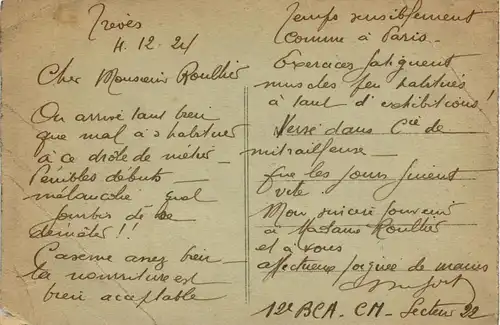 Trèves
4.12.24
Cher Monsieur Roullier
On arrive tant bien
que mal à s'habituer
à ce drôle de métier _
Pénibles débuts _
mélancolie _ quel
de
démêler !!
Caserne assez bien _
la nourriture est
bien acceptable
Temps sensiblement
comme à Paris _
Exercices fatiguent
muscles peu habitués
à tant d'exhibitions !
Versé dans Cie de
mitrailleuse _
que les jours fuient
vite
Mon sincère souvenir
à Madame Roullier
et à vous
affectueuse poignée de mains
12e BCA _ CM _ Secteur 22